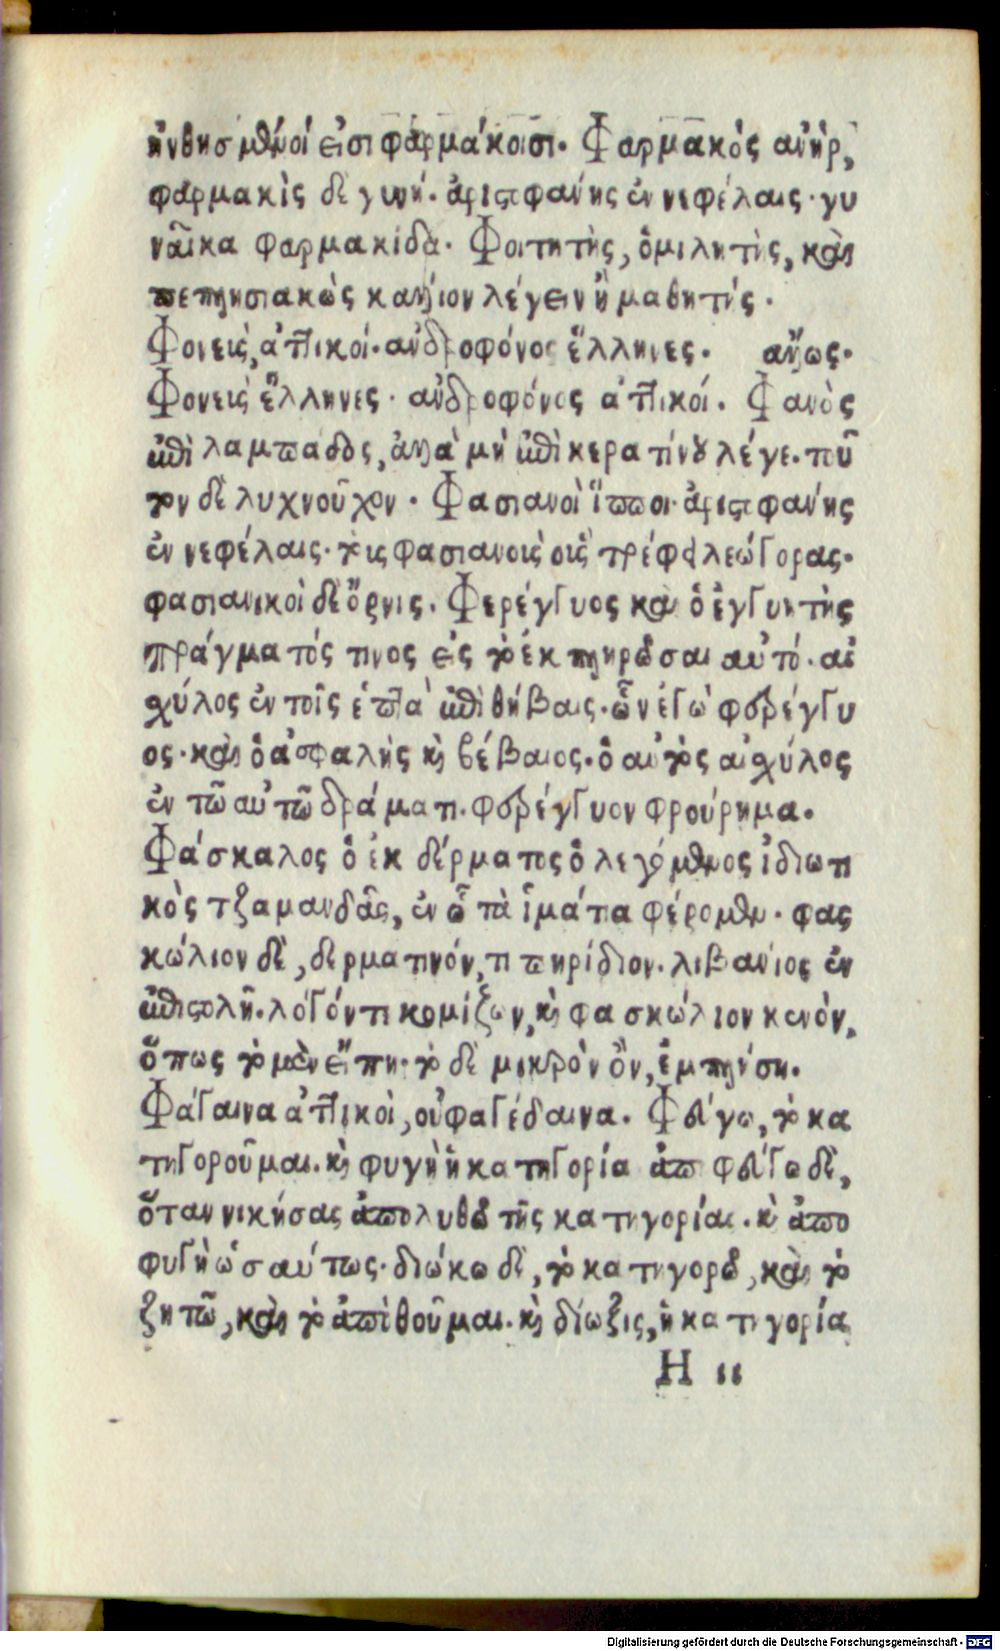 ἠνθησμένοί εἰσι φάρμακοισι. Φαρμακὸς ἀνὴρ,
φαρμακὶς δὲ γυνή. ἀριστοφάνης ἐν νεφέλαις. γυ
ναῖκα φαρμακίδα. Φοιτητὴς, ὁμιλητὴς, καὶ
πεπλησιακὼς κάλλιον λέγειν ἢ μαθητής.
Φονεὺς, ἀττικοί. ἀνδροφόνος ἕλληνες. ἄλλως.
Φονεὺς ἕλληνες. ἀνδροφόνος ἀττικοί. Φανὸς
ἐπὶ λαμπάδος, ἀλλὰ μὴ ἐπὶ κερατίνου λέγε. τοῦ
τον δὲ λυχνοῦχον. Φασιανοὶ ἵπποι. ἀριστοφάνης
ἐν νεφέλαις. τοὺς φασιανοὺς οὓς τρέφει λεώγορας.
φασιανικοὶ δὲ ὄρνις. Φερέγγυος καὶ ὁ ἐγγυητὴς
πράγματός τινος εἰς τὸ ἐκπληρῶσαι αὐτό. αἰ
χύλος ἐν τοῖς ἑπτὰ ἐπὶ θήβαις. ὧν ἐγὼ φερέγγυ
ος. καὶ ὁ ἀσφαλὴς καὶ βέβαιος. ὁ αὐτὸς αἰχύλος
ἐν τῷ αὐτῷ δράματι. φερέγγυον φρούρημα.
Φάσκαλος ὁ ἐκ δέρματος ὁ λεγόμενος ἰδιωτι
κὸς τζαμανδᾶς, ἐν ᾧ τὰ ἱμάτια φέρομεν. φας
κώλιον δὲ, δερματινόν, τι πηρίδιον. λιβανίος ἐν
ἐπιστολῇ. λόγόν τι κομίζων, καὶ φασκώλιον κενόν,
ὅπως τὸ μὲν εἴπῃ. τὸ δὲ μικρὸν ὂν, ἐμπλήσῃ.
Φάγαινα ἀττικοὶ, οὐ φαγέδαινα. Φεύγω, τὸ κα
τηγοροῦμαι. καὶ φυγὴ ἡ κατηγορία ἀπο φεύγω δὲ,
ὅταν νικήσας ἀπολυθῶ τῆς κατηγορίας. καὶ ἀπο
φυγὴ ὡσαύτως. διώκω δὲ, τὸ κατηγορῶ, καὶ τὸ
ζητῶ, καὶ τὸ ἀπιθοῦμαι. καὶ δίωξις, ἡ κατηγορία
H ii
Digitalisierung gefördert durch die Deutsche Forschungsgemeinschaft - DFG